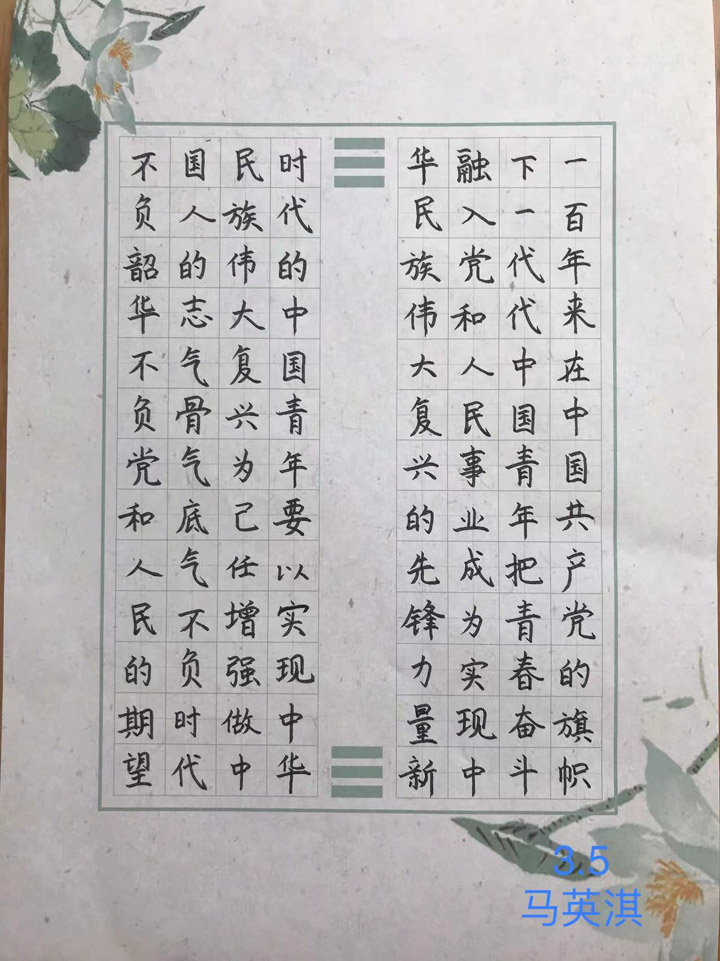 一百年来在中国共产党的旗帜
下一代代中国青年把青春奋斗
融入党和人民事业成为实现中
华民族伟大复兴的先锋力量新
时代的中国青年要以实现中华
民族伟大复兴为己任增强做中
国人的志气骨气底气不负时代
不负韶华不负党和人民的期望
3.5
马英淇